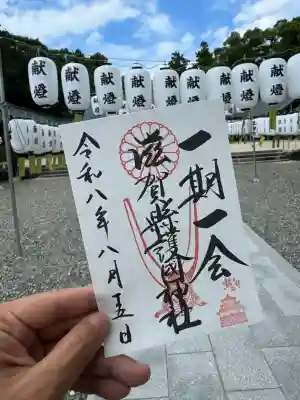 献燈
献燈
献燈
献燈
献燈
献燈
献燈
献燈
献燈
献燈
一期一会
滋賀縣護國神社
令和八年八月十五日